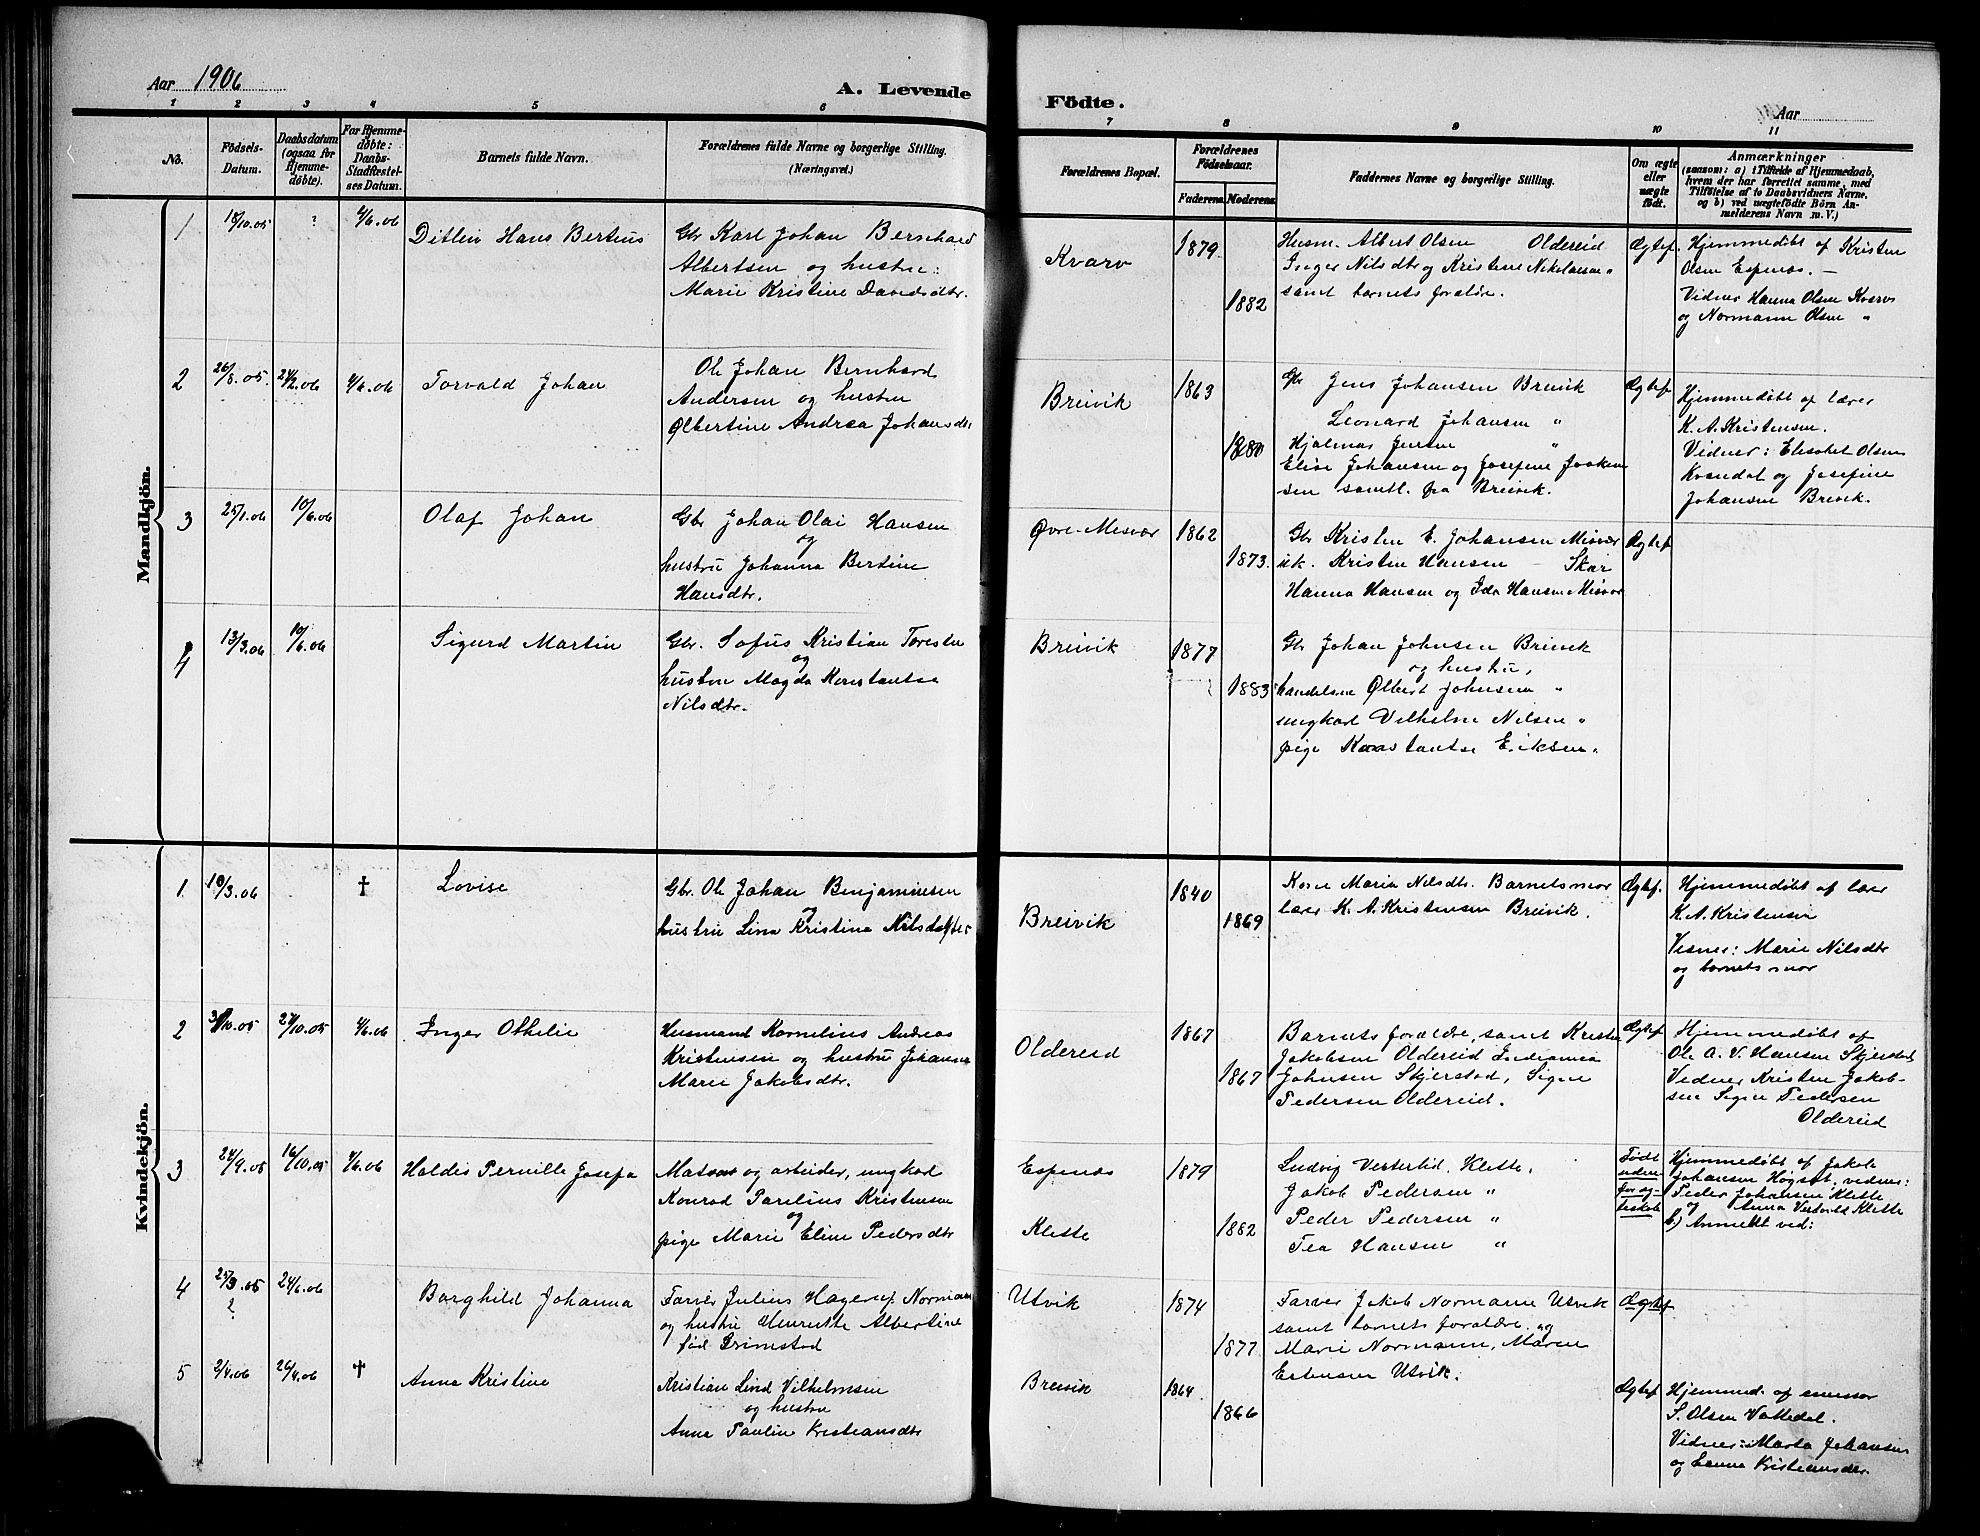 Aar 1906
A. Levende Födte.
Aar
1 2 3 4 5 6 7 8 9 10 11
No.
Födsels-Datum.
Daabsdatum (ogsaa for Hjemme-döbte).
For Hjemme-döbte: Daabs-Stadfestelses Datum.
Barnets fulde Navn.
Forældrenes fulde Navne og borgerlige Stilling.
(Næringsvei.)
Forældrenes Bopæl.
Forældrenes Födselsaar.
Faderens. Moderens.
Faddernes Navne og borgerlige Stilling.
Om ægte eller uægte födt.
Anmærkninger
(saasom: a) i Tilfælde af Hjemmedaab,
hvem der har forrettet samme, med
Tilföielse af to Daabsvidners Navne,
og b) ved uægtefödte Börn An-
melderens Navn m. V.)
Mandkjön.
1 18/10.05 ? 4/6.06 Ditlev Hans Bertius
Gbr Karl Johan Bernhard
Albertsen og hustru:
Marie Kristine Davidsdtr.
Kvarv
1879
1882
Husm. Albert Olsen Oldereid
Inger Nilsdtr og Kristine Nikolaisen "
samt barnets foreldre.
Ægtef.
Hjemmedöbt af Kristen
Olsen Espenæs. —
Vidner Hanna Olsen Kvarv
og Normann Olsen "
2 26/8.05 24/2.06 4/6.06 Torvald Johan
Ole Johan Bernhard
Andersen og hustru
Olbertine Andrea Johansdtr
Breivik
1863
1880
Gbr Jens Johansen Breivik
Leonard Johansen "
Hjalmar Jensen "
Elise Johansen og Josefine Joakim
sen samtl. fra Breivik.
Ægtef
Hjemmedöbt af lærer
K. A. Kristensen.
Vidner: Elisabet Olsen
Kvændal og Josefine
Johansen Breivik.
3 25/1.06 10/6.06 Olaf Johan
Gbr Johan Olai Hansen
og
hustru Johanna Bertine
Hansdtr.
Øvre-Misvær
1862
1873.
Gbr Kristen E. Johansen Misvær
uk. Kristen Hansen — Skar
Hanna Hansen og Ida Hansen Misvær
Ægtef
4 13/3.06 10/6.06 Sigurd Martin
Gbr. Sofus Kristian Toresen
og
hustru Magda Konstantse
Nilsdtr.
Breivik
1877
1883
Gbr Johan Johnsen Breivik
og hustru,
handelsm Olbert Johnsen "
ungkarl Vilhelm Nilsen "
pige Konstantse Eriksen "
Kvindekjön.
1 10/3.06 † Lovise
Gbr. Ole Johan Benjaminsen
og
hustru Lina Kristina Nilsdatter
Breivik
1840
1869
Kone Maria Nilsdtr. Barnets mor
lærer K. A. Kristensen Breivik.
Ægtef.
Hjemmedöbt af lærer
K. A. Kristensen
Vidner: Marie Nilsdtr
og barnets mor
2 3/10.05 27/10.05 4/6.06 Inger Othelie
Husmand Kornelius Andreas
Kristensen og hustru Johanna
Marie Jakobsdtr.
Oldereid
1867
1867
Barnets foreldre, samt Kristen
Jakobsen Oldereid
Johnsen Skjerstad, Signe
Pedersen Oldereid.
Ægtef
Hjemmedöbt af
Ole A. V. Hansen Skjerstad
Vidner Kristen Jakob-
sen Signe Pedersen
Oldereid
3 24/9.05 16/10.05 4/6.06 Haldis Pernille Josefa
Matros og arbeider, ungkarl
Konrad Parelius Kristensen
og
pige Marie Eline Pedersdtr
Espenæs
Klette
1879
1882
Ludvig Vestertid, Klette,
Jakob Pedersen "
Peder Pedersen "
Tea Hansen "
Födt
uden-
for æg-
teskab
Hjemmedöbt af Jakob
Johansen Högset, vidner:
Peder Johansen Klette
og Anna Klette
b) Anmeldt ved:
4 25/3.05 24/6.06 Borghild Johanna
?
Farver Julius Hagerup Normann
og hustru Henrikke Albertine
föd Grimstad
Utvik
1874
1877
Farver Jakob Normann Utvik
samt barnets foreldre og
Marie Normann, Maren
Estensen Utvik.
Ægtef
5 2/4.06 26/4.06 † Anna Kristine
Kristian Lind Vilhelmsen
og hustru
Anna Paulin Kristiansdtr
Breivik
1864
1866
Ægtef
Hjemmed. af emissær
S. Olsen Vattedal.
Vidner: Marta Johansen
og Kristiansdtr.